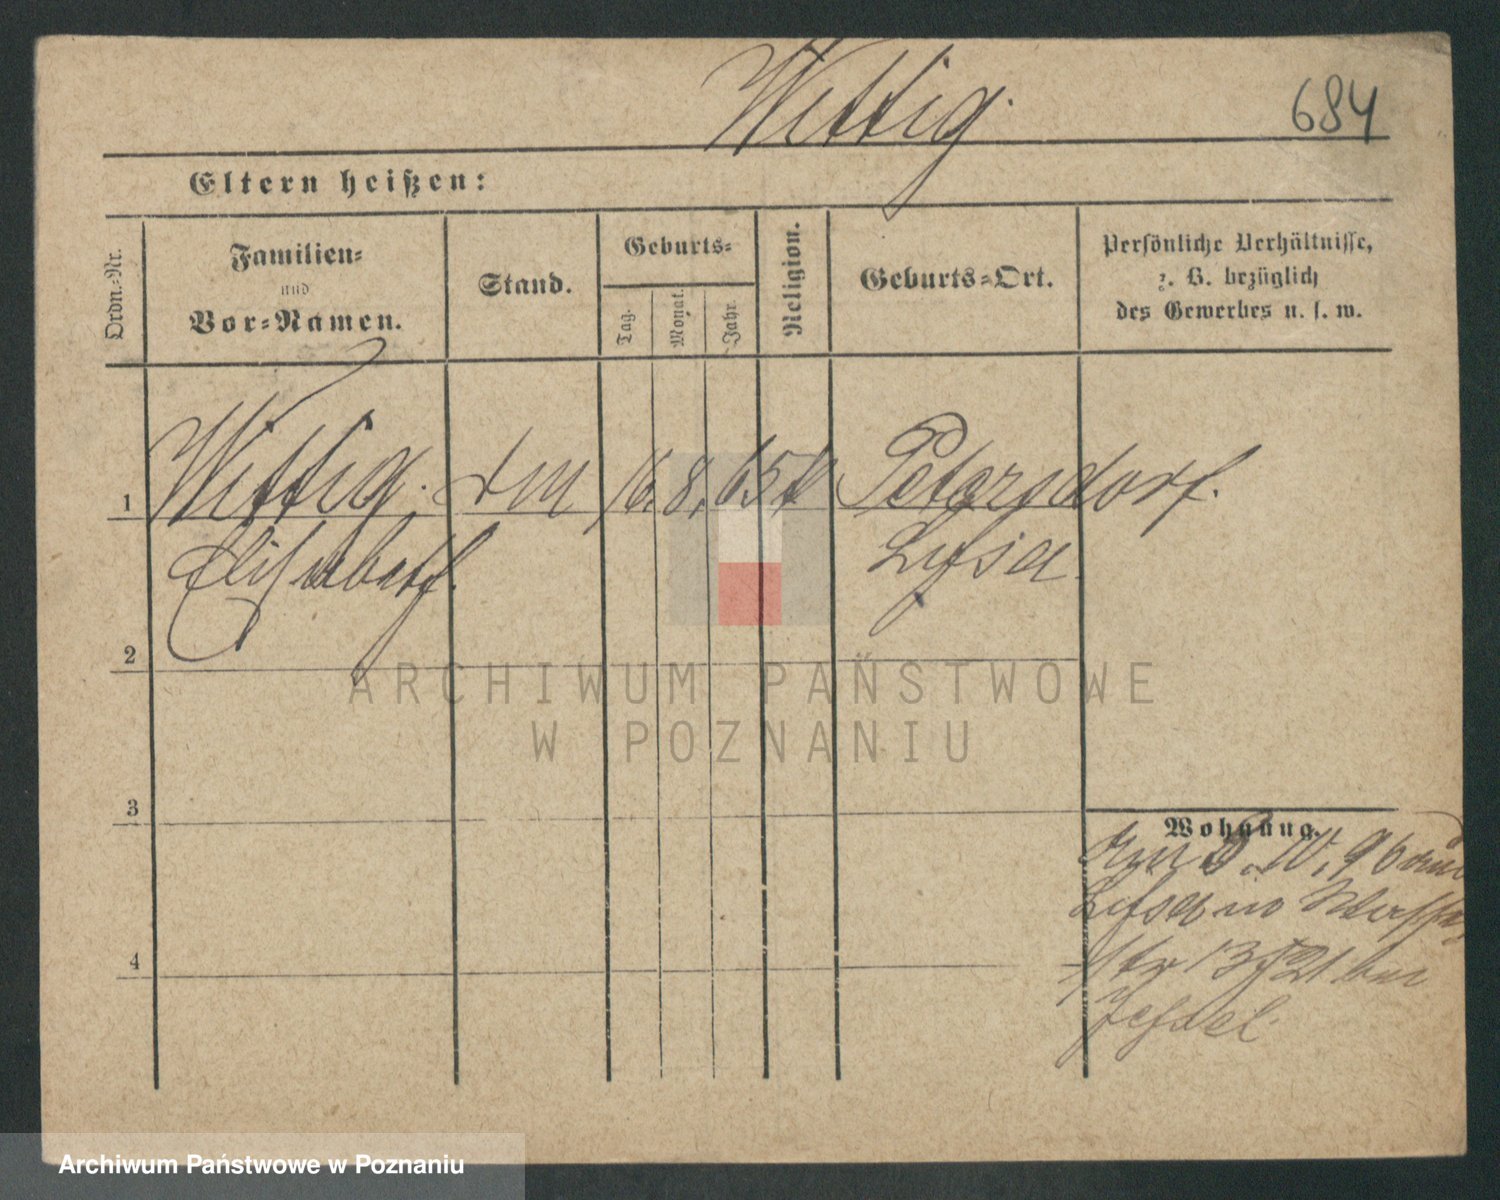 Wittig.
684
Eltern heißen:
Ordn.-Nr.
Familien-
und
Vor-Namen.
Stand.
Geburts-
Tag.
Monat.
Jahr.
Religion.
Geburts-Ort.
Persönliche Verhältnisse,
z. B. bezüglich
des Gewerbes u. s. w.
1 Wittig. 16. 8. 65 k Petersdorf.
Elisabeth. Lissa.
2
3
4
Wohnung.
10. 96
Lissa
Str 13
ARCHIWUM PAŃSTWOWE
W POZNANIU
Archiwum Państwowe w Poznaniu